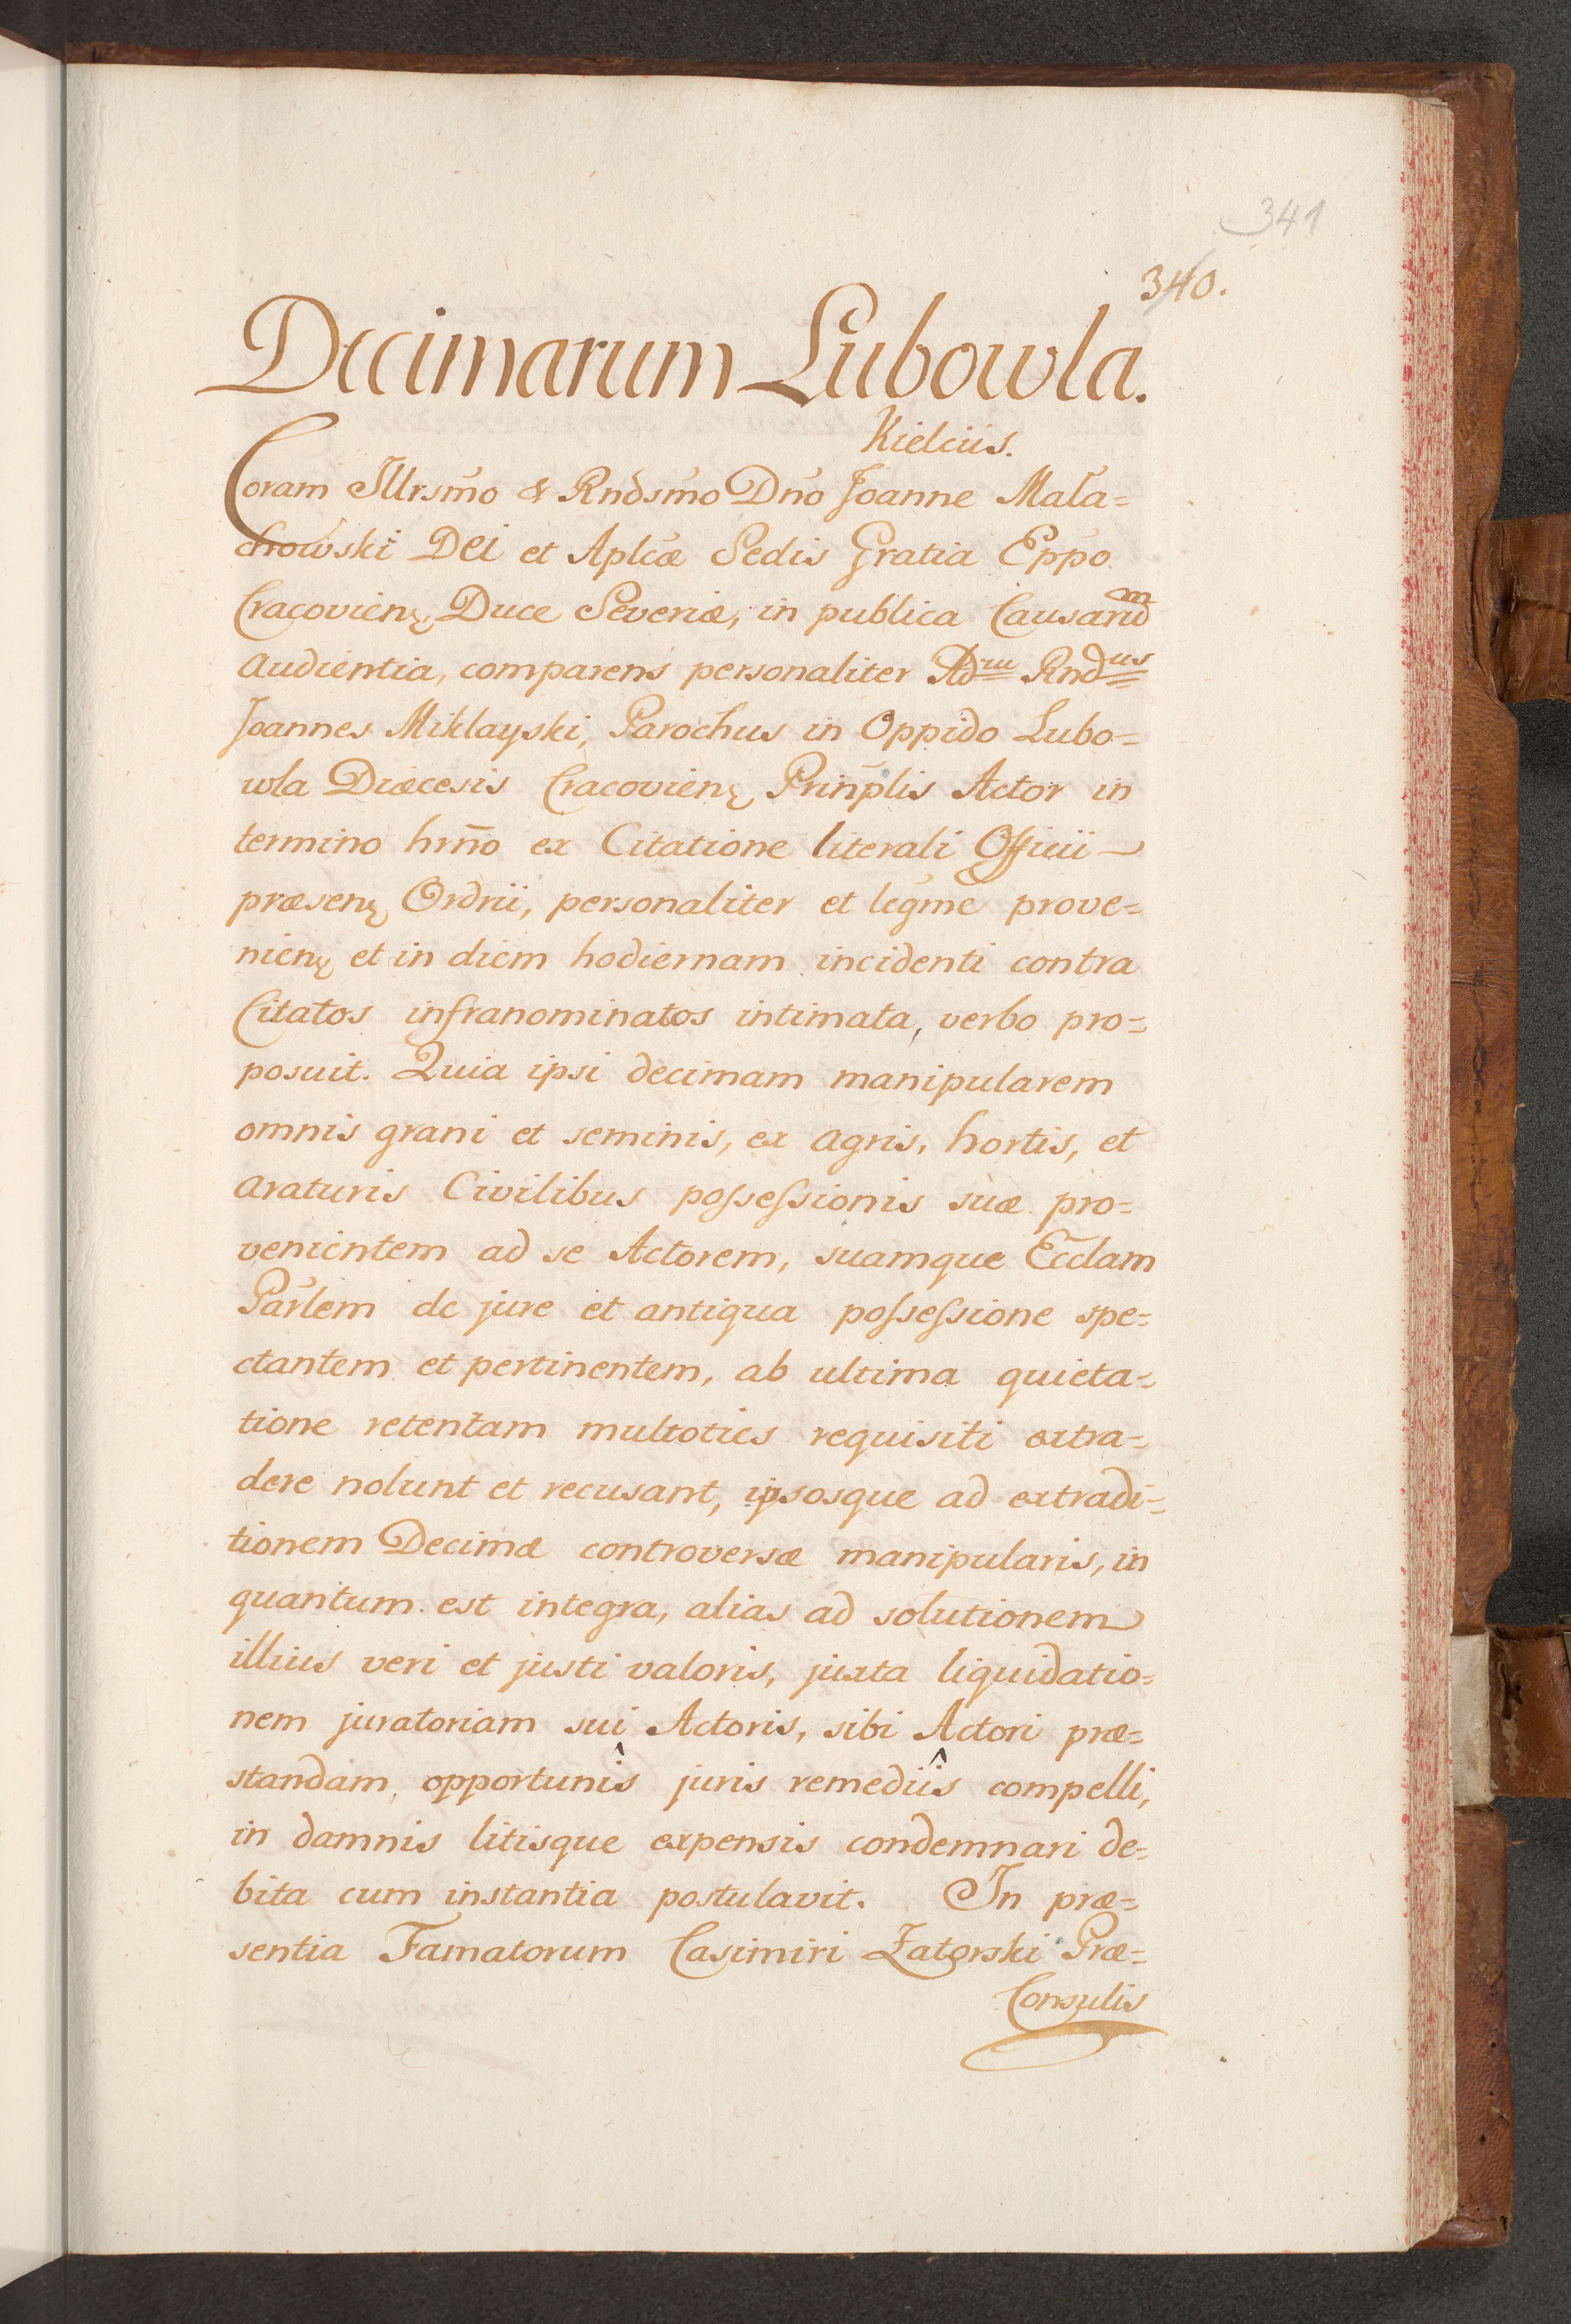 341
340.
Decimarum Lubowla.
Kielciis.
Coram Illrsm̄o & Rndsm̄o Dn̄o Joanne Mala=
chowski Dei et Aplc̄æ Sedis Gratia Epp̄o
Cracovienę, Duce Severiæ, in publica Causarū
audientia, comparens personaliter Adm Rndus
Joannes Miklayski, Parochus in Oppido Lubo=
wla Diæcesis Cracovienę Prinp̄lis Actor in
termino hm̄o ex Citatione literali Officii
præsenę Ordrii, personaliter et legm̄e prove=
nienę et in diem hodiernam incidenti contra
Citatos infranominatos intimata, verbo pro=
posuit. Quia ipsi decimam manipularem
omnis grani et seminis, ex agris, hortis, et
araturis Civilibus possessionis suæ pro=
venientem ad se Actorem, suamque Eccl̄am
Parl̄em de jure et antiqua possessione spe=
ctantem et pertinentem, ab ultima quieta=
tione retentam multoties requisiti extra=
dere nolunt et recusant, ipsosque ad extradi=
tionem Decimæ controversæ manipularis, in
quantum est integra, alias ad solutionem
illius veri et justi valoris, juxta liquidatio=
nem juratoriam sui Actoris, sibi Actori præ=
standam, opportunîs juris remediîs compelli,
in damnis litisque expensis condemnari de=
bita cum instantia postulavit. In præ=
sentia Famatorum Casimiri Zatorski Præ=
Consulis